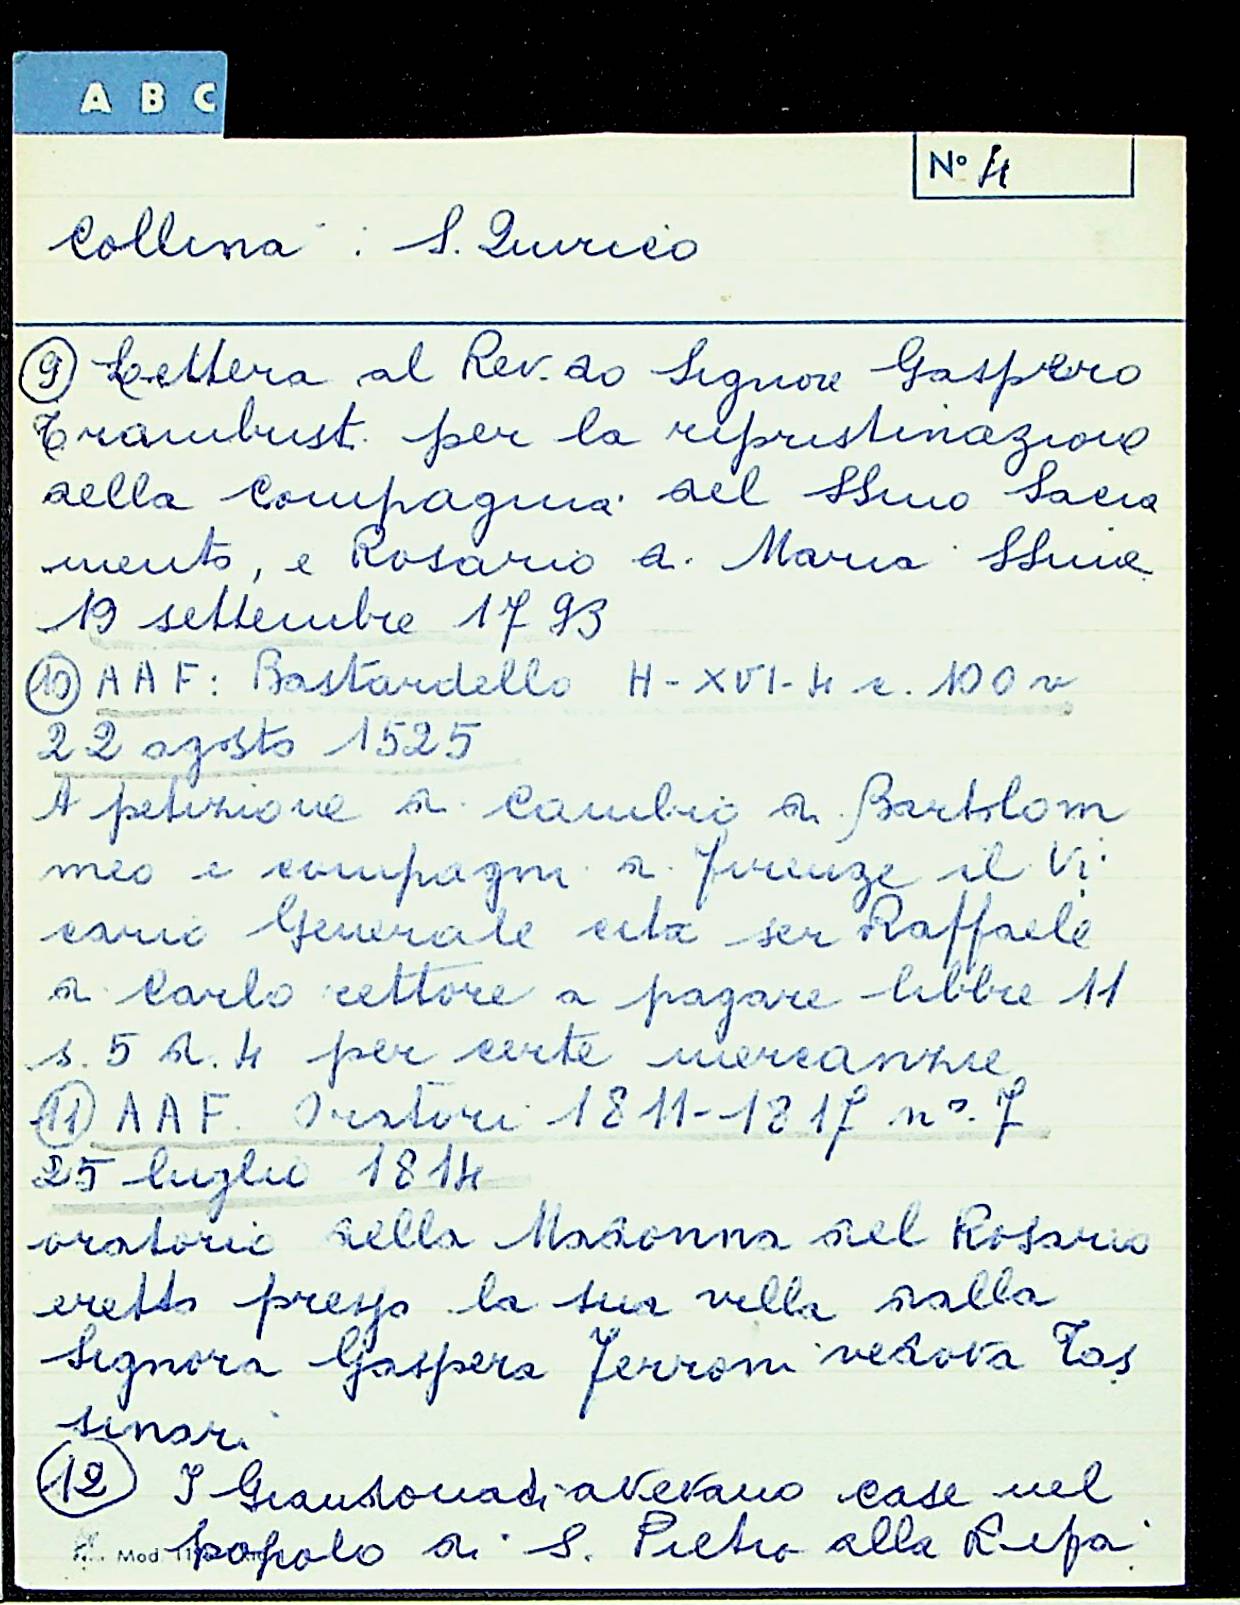 A B C
N° 4
Collina : S. Quirico
9 Lettera al Rev.do Signore Gaspero
Trambusti per la ripristinazione
della Compagnia del SSmo Sacra
mento, e Rosario di Maria SSma
19 settembre 1793
10 AAF: Bastardello H-XVI-4 c. 100 v
22 agosto 1525
A petizione di Cambio di Bartolom
meo e compagni di Firenze il Vi
cario Generale cita ser Raffaele
di Carlo rettore a pagare libbre 11
s. 5 d. 4 per certe mercanzie
11 AAF. Oratori 1811-1817 n°. 7
25 luglio 1814
oratorio della Madonna del Rosario
eretto presso la sua villa dalla
Signora Gaspera Ferroni vedova Tas
sinari
12 I Giandonati avevano case nel
popolo di S. Pietro alla Ripa
Mod